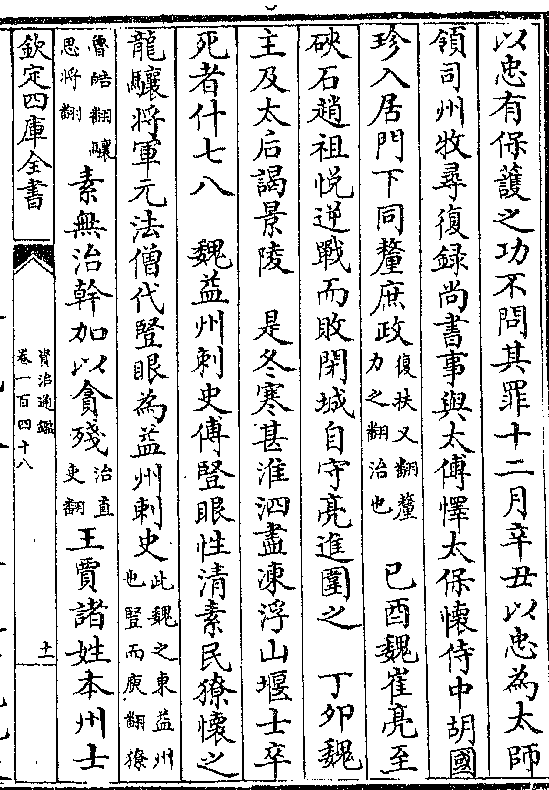 以忠有保護之功不問其罪十二月辛丑以忠為太師
領司州牧尋復録尚書事與太傅懌太保懷侍中胡國
珍入居門下同釐庶政復扶又翻釐力之翻治也　己酉魏崔亮至
硤石趙祖悅逆戰而敗閉城自守亮進圍之　丁卯魏
主及太后謁景陵　是冬寒甚淮泗盡凍浮山堰士卒
死者什七八　魏益州刺史傅豎眼性清素民獠懷之
龍驤將軍元法僧代豎眼為益州刺史此魏之東益州也豎而庾翻獠
魯皓翻驤思將翻素無治幹加以貪殘治直吏翻王賈諸姓本州士
欽定四庫全書
資治通鑑
卷一百四十八
十一